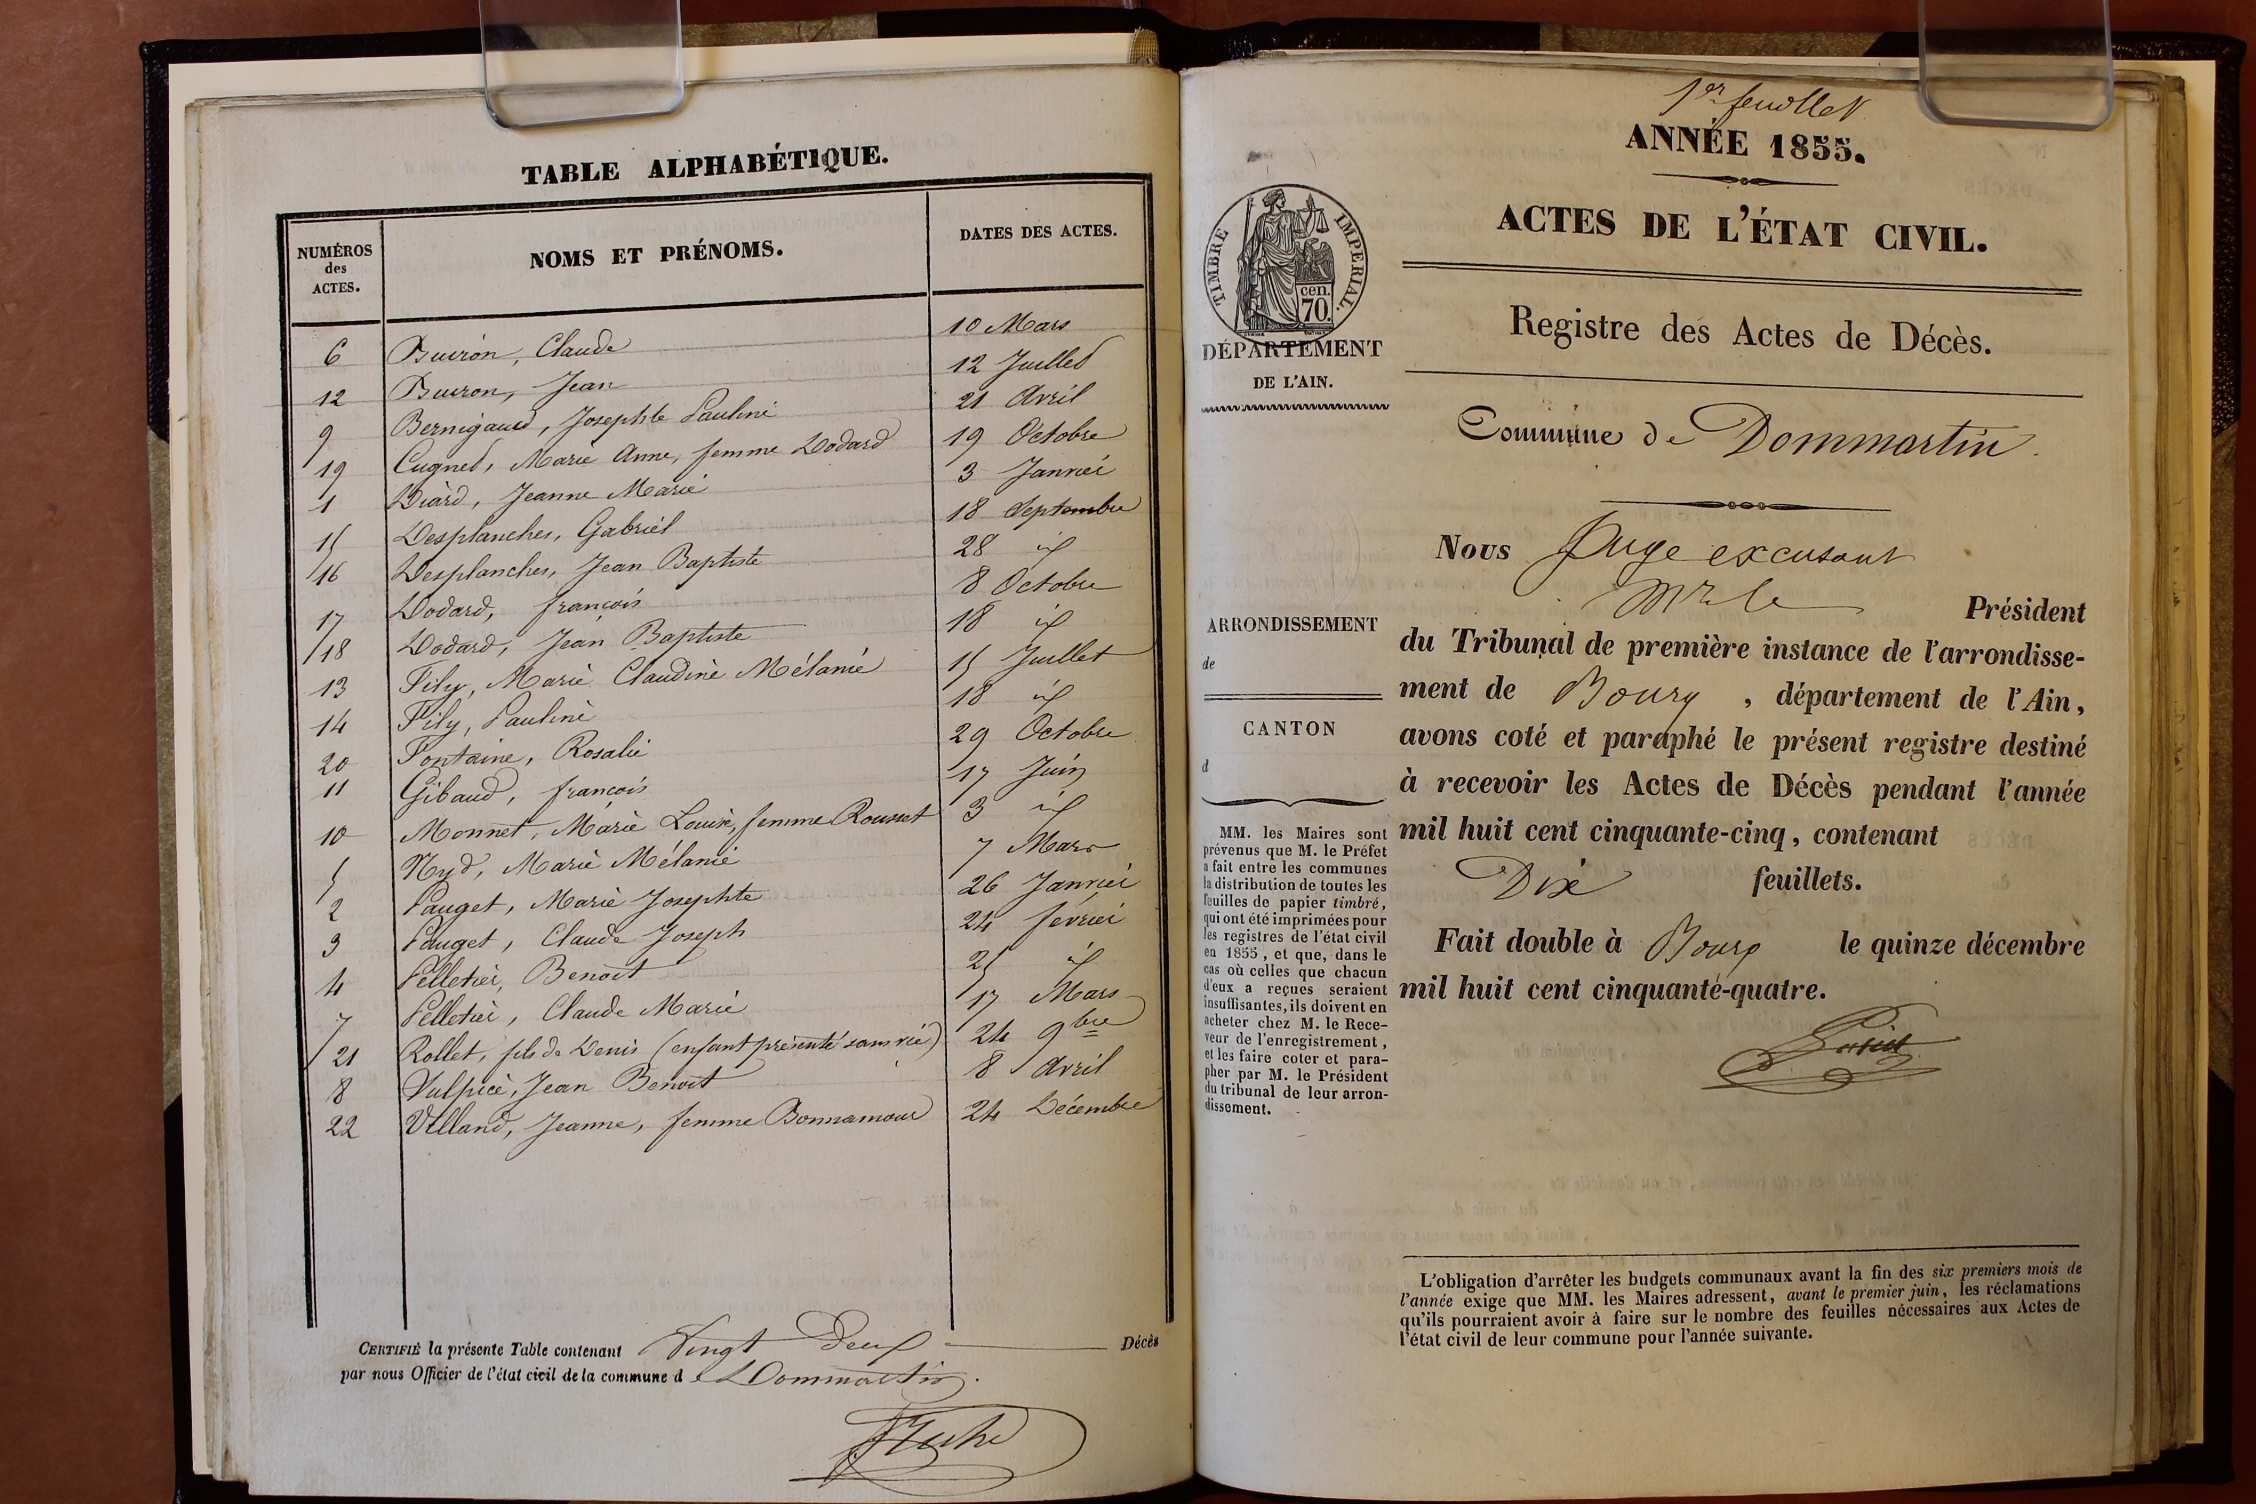 TABLE ALPHABÉTIQUE.
NUMÉROS des ACTES. NOMS ET PRÉNOMS. DATES DES ACTES.
6 Buiron, Claude 10 Mars
12 Buiron, Jean 12 Juillet
9 Bernigaud, Josephte Pauline 21 Avril
19 Cugnet, Marie Anne, femme Dodard 19 Octobre
1 Diard, Jeanne Marie 3 Janvier
15 Desplanches, Gabriel 18 Septembre
16 Desplanches, Jean Baptiste 28 id
17 Dodard, françois 8 Octobre
18 Dodard, Jean Baptiste 18 id
13 Fily, Marie Claudine Mélanie 15 Juillet
14 Fily, Pauline 18 id
20 Fontaine, Rosalie 29 Octobre
11 Gibaud, françois 17 Juin
10 Monnet, Marie Louise, femme Rousset 3 id
5 Nyd, Marie Mélanie 7 Mars
2 Pauget, Marie Josephte 26 Janvier
3 Pauget, Claude Joseph 24 février
4 Pelletier, Benoit 25 id
7 Pelletier, Claude Marie 17 Mars
21 Rollet, fils de Denis (enfant présenté sans vie) 24 9bre
8 Vulpice, Jean Benoit 8 Avril
22 Villand, Jeanne, femme Bonnamour 24 Décembre
CERTIFIÉ la présente Table contenant Vingt Deux Décès
par nous Officier de l'état civil de la commune d e Dommartin.
1er feuillet
ANNÉE 1855.
ACTES DE L'ÉTAT CIVIL.
Registre des Actes de Décès.
Commune de Dommartin.
TIMBRE IMPERIAL.
cen.
70.
DÉPARTEMENT
DE L'AIN.
ARRONDISSEMENT
de
CANTON
d
MM. les Maires sont
prévenus que M. le Préfet
a fait entre les communes
la distribution de toutes les
feuilles de papier timbré,
qui ont été imprimées pour
les registres de l'état civil
en 1855, et que, dans le
cas où celles que chacun
d'eux a reçues seraient
insuffisantes, ils doivent en
acheter chez M. le Rece-
veur de l'enregistrement,
et les faire coter et para-
pher par M. le Président
du tribunal de leur arron-
dissement.
Nous Juge excusant
Mr le Président
du Tribunal de première instance de l'arrondisse-
ment de Bourg, département de l'Ain,
avons coté et paraphé le présent registre destiné
à recevoir les Actes de Décès pendant l'année
mil huit cent cinquante-cinq, contenant
Dix feuillets.
Fait double à Bourg le quinze décembre
mil huit cent cinquante-quatre.
L'obligation d'arrêter les budgets communaux avant la fin des six premiers mois de
l'année exige que MM. les Maires adressent, avant le premier juin, les réclamations
qu'ils pourraient avoir à faire sur le nombre des feuilles nécessaires aux Actes de
l'état civil de leur commune pour l'année suivante.